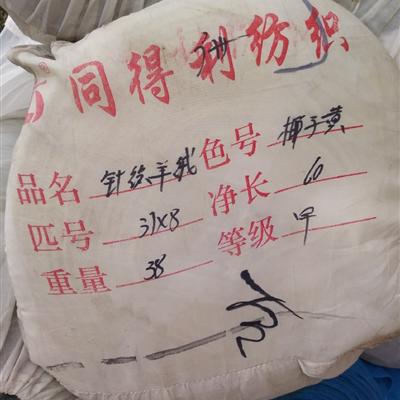 同得利纺织
品名 针织羊绒 色号 椰子黄
匹号 37x8 净长 60
重量 38 等级 甲